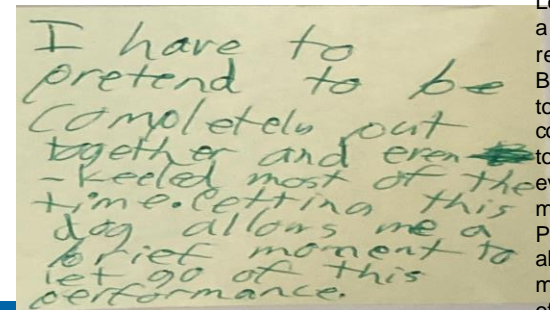 I have to
pretend to be
completely put
together and even
-keeled most of the
time. Petting this
dog allows me a
brief moment to
let go of this
performance.